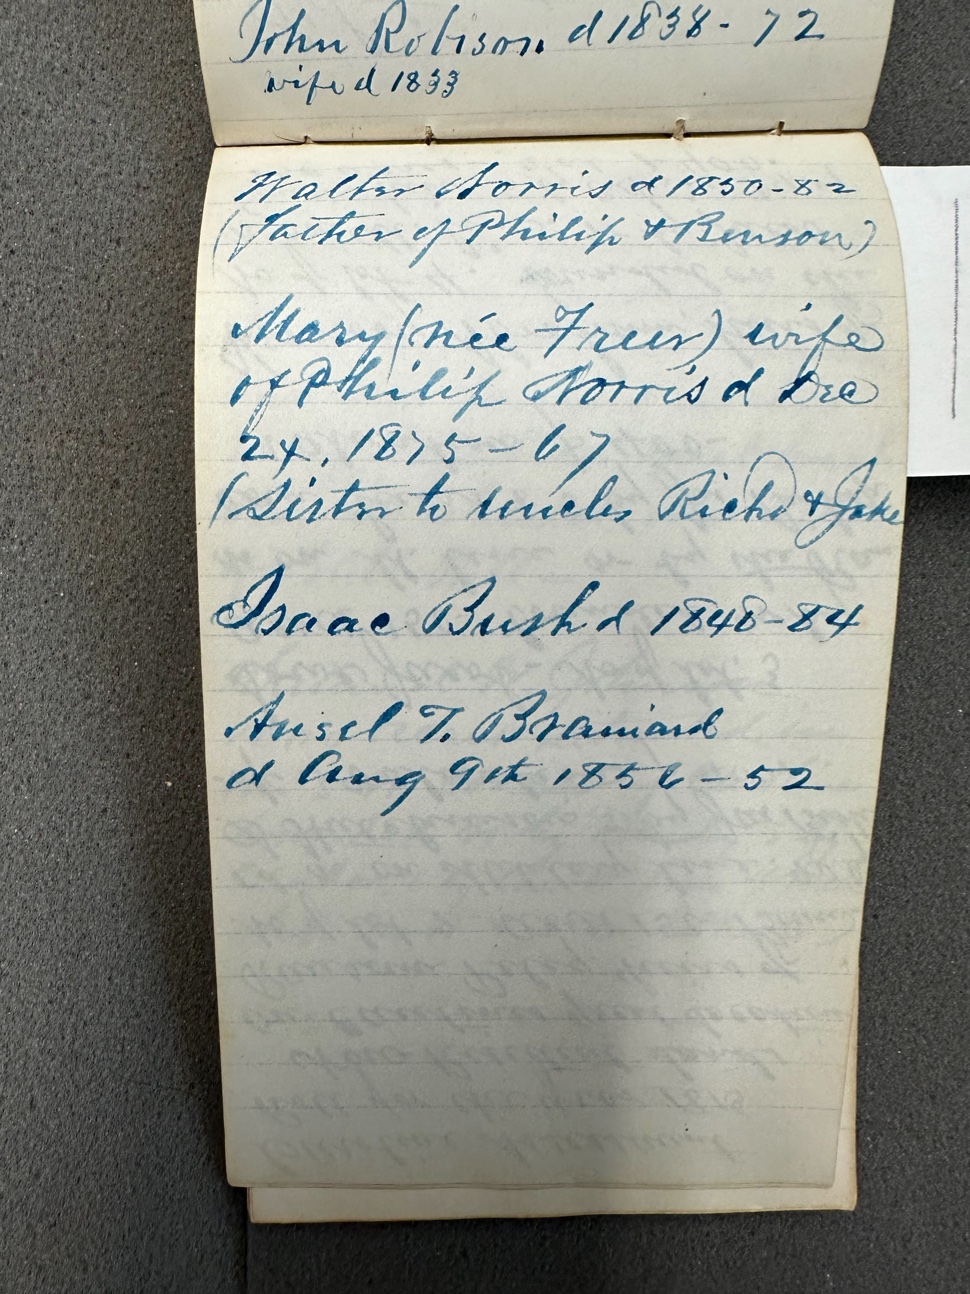 John Robison d 1838 - 72
wife d 1833
Walter Norris d 1850-82
(father of Philip & Benson)
Mary (née Freer) wife
of Philip Norris d Dec
24, 1875 - 67
(Sister to uncles Richd & Jake
Isaac Bush d 1848-84
Ansel T. Brainard
d Aug 9th 1856 - 52